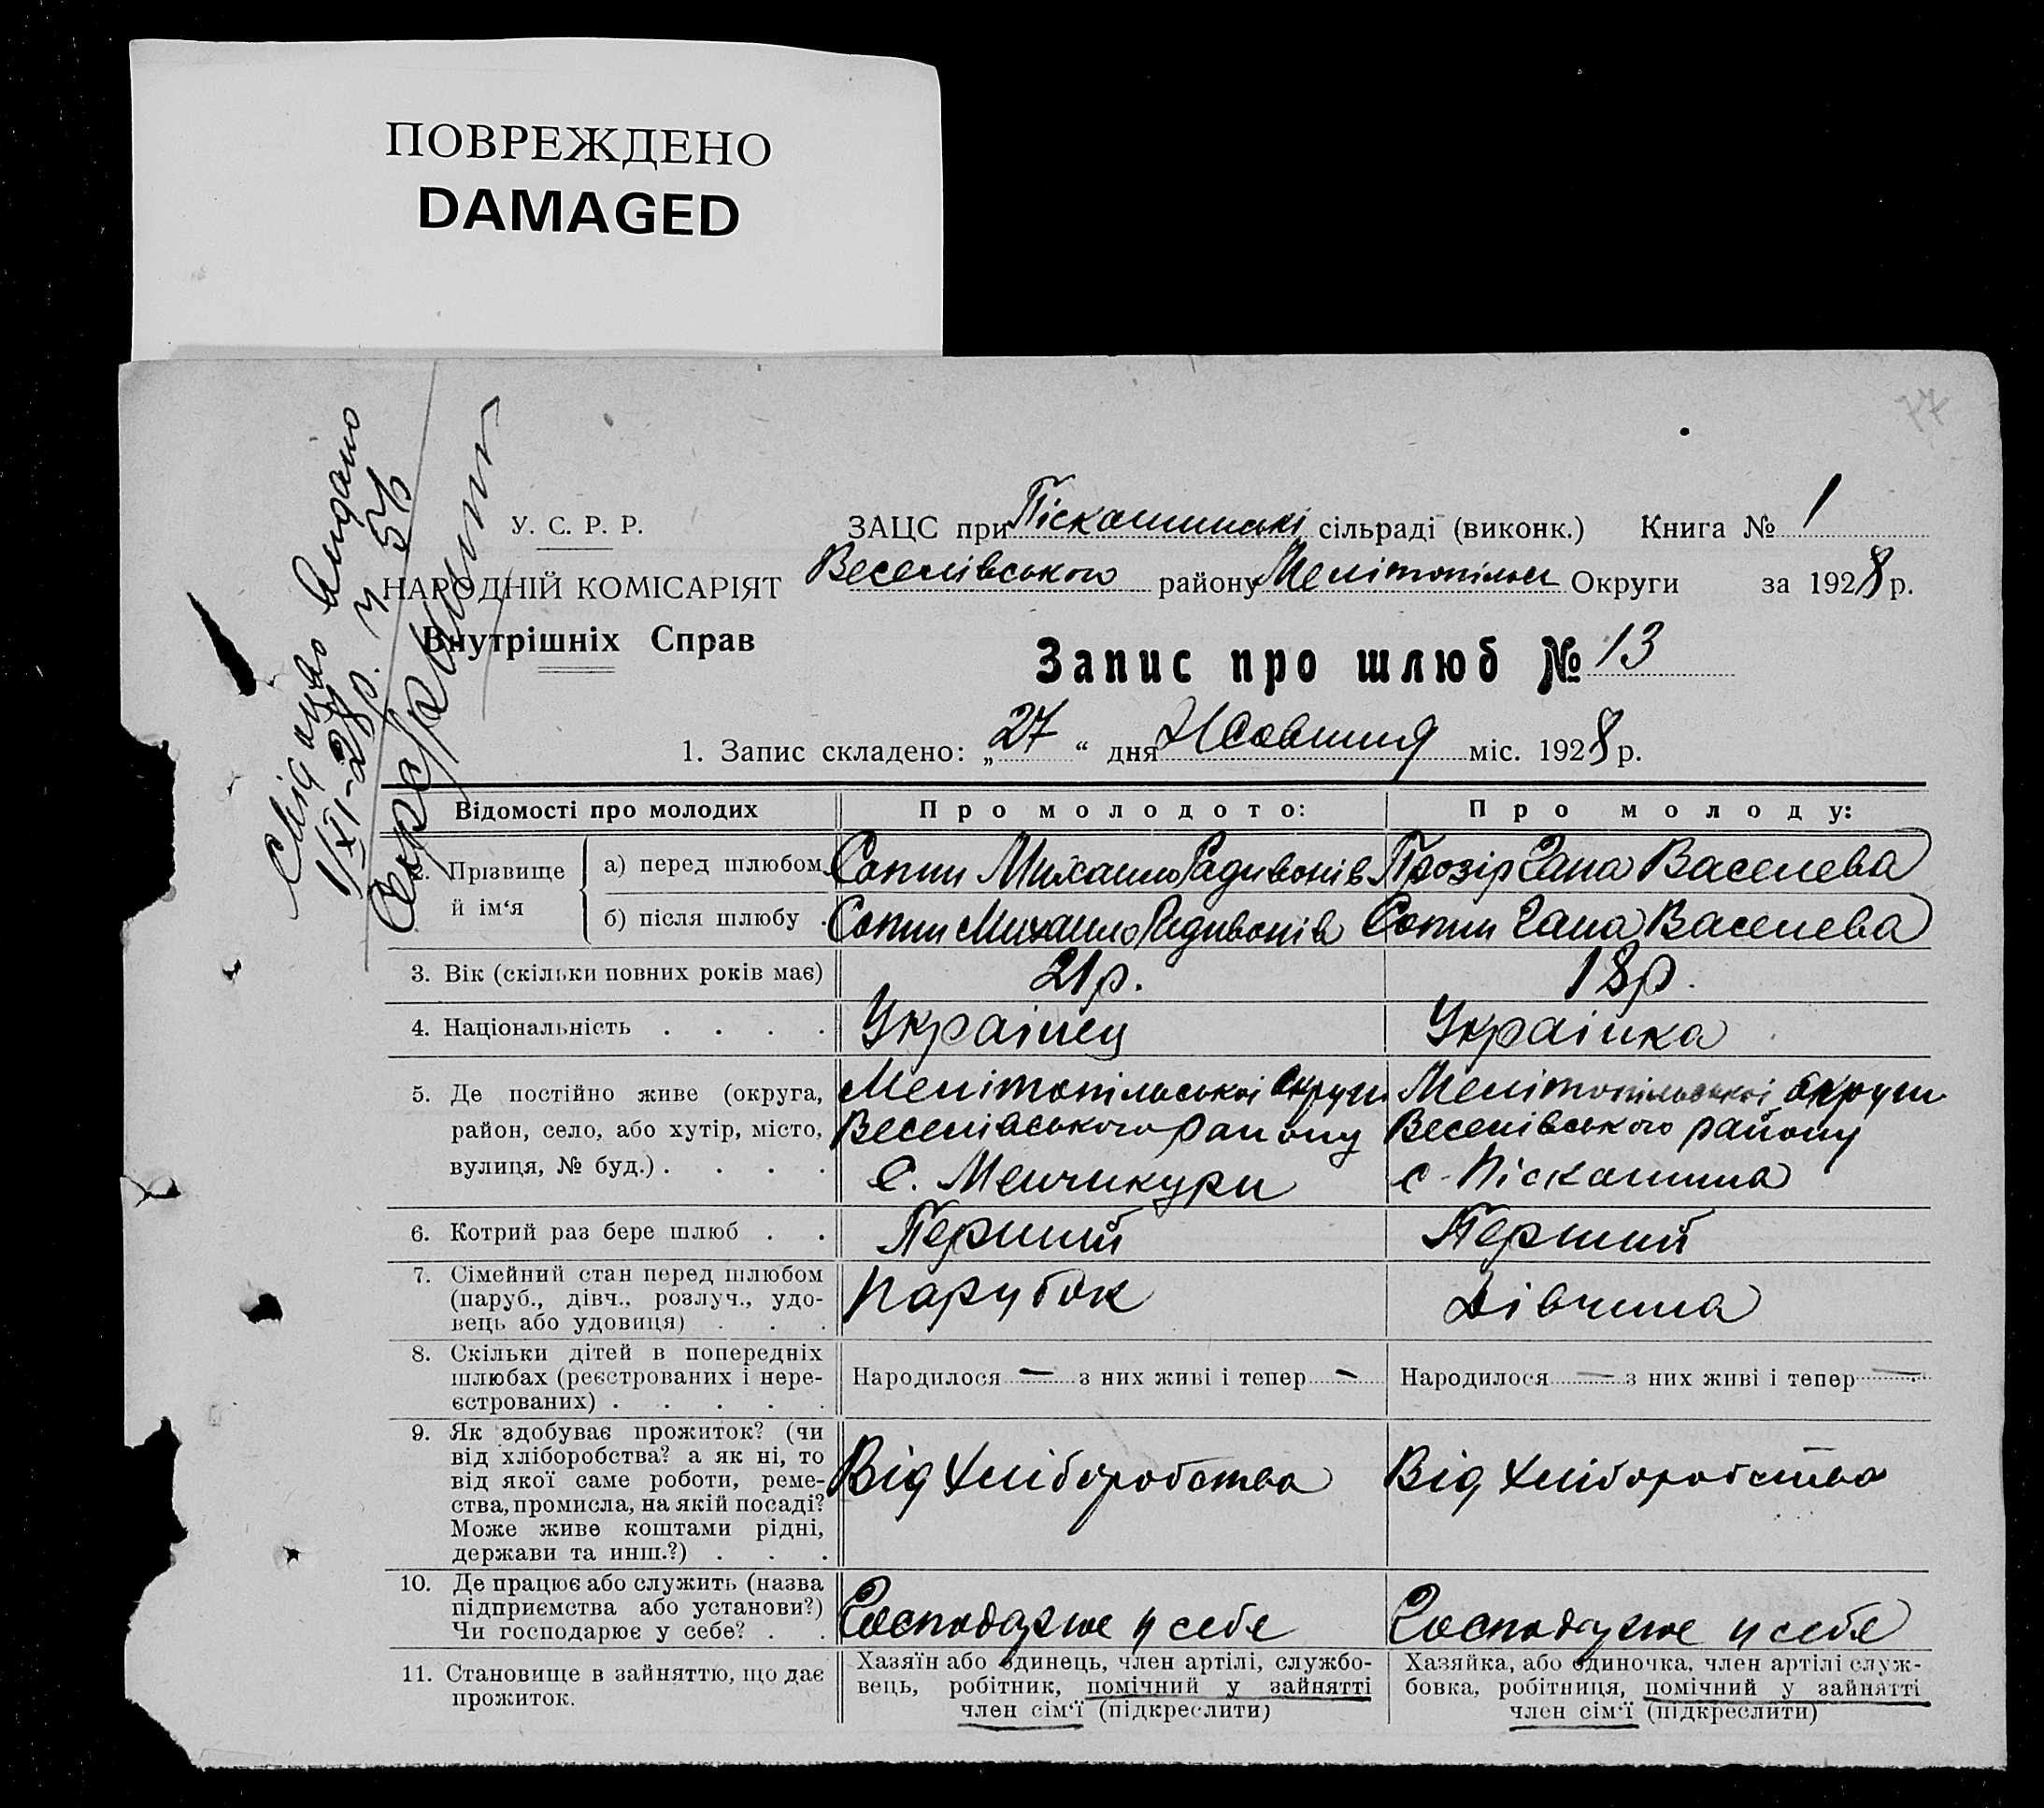 ПОВРЕЖДЕНО
DAMAGED
77
Видано
1/XI-28р. у 57
У. С. Р. Р.
НАРОДНІЙ КОМІСАРІЯТ
Внутрішніх Справ
ЗАЦС при Піскашинські сільраді (виконк.) Книга № 1
Веселівського району Мелітопільск Округи за 1928 р.
Запис про шлюб № 13
1. Запис складено: „27“ дня Жовтня міс. 1928 р.
Відомості про молодих Про молодого: Про молоду:
2. Прізвище й ім‘я
а) перед шлюбом Сопин Михайло Радивонів Прозір Гана Васелева
б) після шлюбу Сопин Михайло Радивонів Сопин Гана Васелева
3. Вік (скільки повних років має) 21р. 18р.
4. Національність . . . . Українец Українка
5. Де постійно живе (округа, Мелітопільської Округи Мелітопільської округи
район, село, або хутір, місто, Веселівського району Веселівського району
вулиця, № буд.) . . . . с. Менчикури с. Піскашина
6. Котрий раз бере шлюб . . Перший Перший
7. Сімейний стан перед шлюбом
(паруб., дівч., розлуч., удо-
вець або удовиця) . . . парубок Дівчина
8. Скільки дітей в попередніх
шлюбах (реєстрованих і нере- Народилося — з них живі і тепер — Народилося — з них живі і тепер —
єстрованих) . . . . .
9. Як здобуває прожиток? (чи
від хліборобства? а як ні, то
від якої саме роботи, реме- Від хліборобства Від хліборобства
ства, промисла, на якій посаді?
Може живе коштами рідні,
держави та инш.?) . . .
10. Де працює або служить (назва
підприємства або установи?)
Чи господарює у себе? . . Господарює у себе Господарює у себе
11. Становище в зайняттю, що дає
прожиток.
Хазяїн або одинець, член артілі, службо-
вець, робітник, помічний у зайнятті
член сім‘ї (підкреслити)
Хазяйка, або одиночка, член артілі служ-
бовка, робітниця, помічний у зайнятті
член сім‘ї (підкреслити)